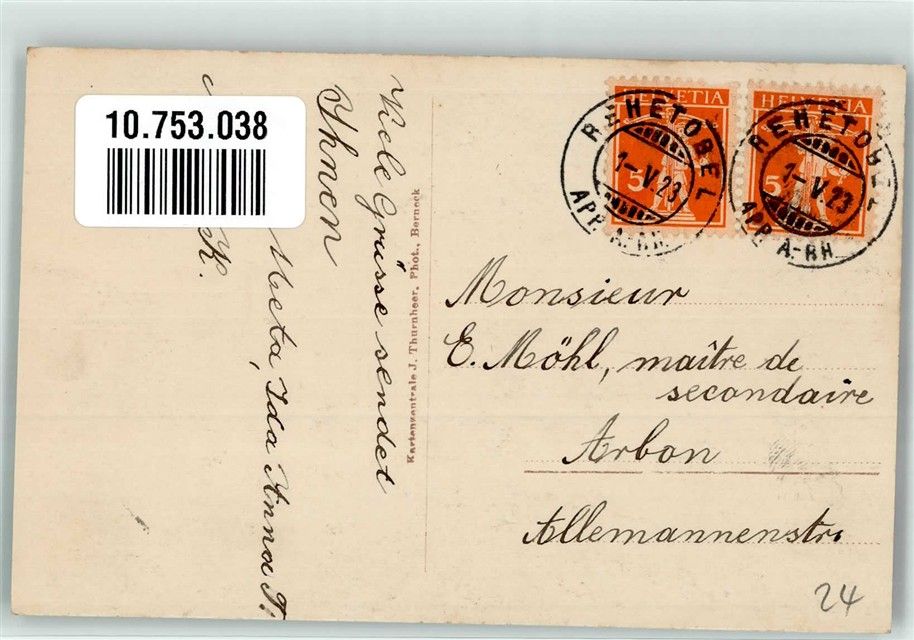 10.753.038
Viele Grüsse sendet
Ihnen
Meta, Ida Anna
K.
Kartenzentrale J. Thurnheer, Phot., Berneck
HELVETIA
5
HELVETIA
5
REHETOBEL
1-V.23
APP. A.-RH.
REHETOBEL
1-V.23
APP. A-RH.
Monsieur
E. Möhl, maître de
secondaire
Arbon
Allemannenstr.
24